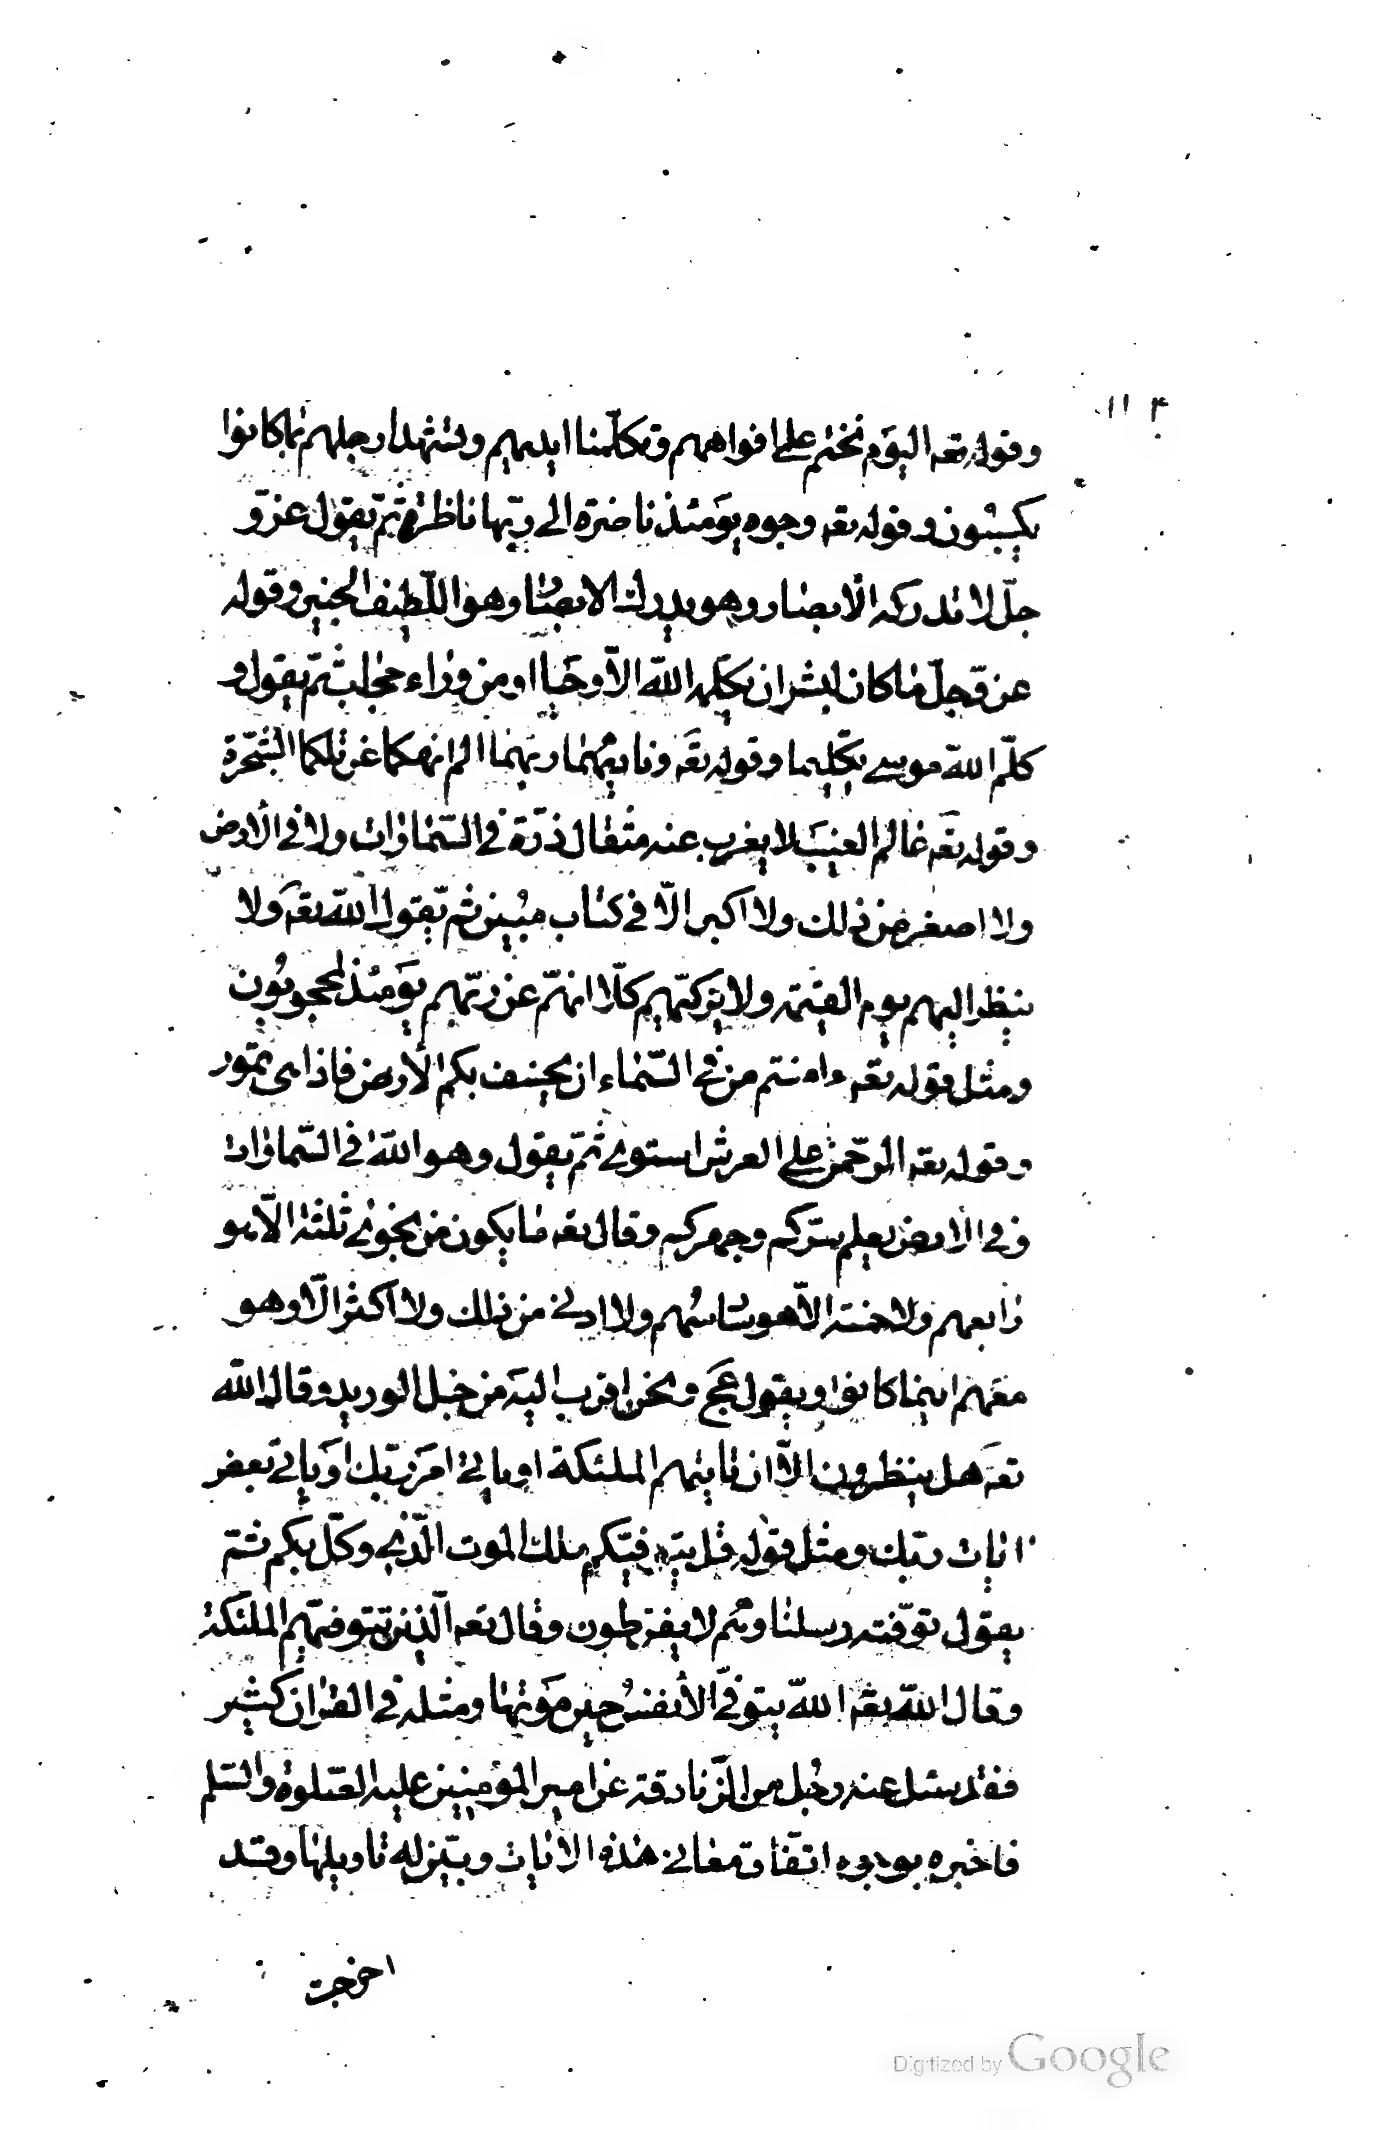 ١١٤
وقوله تعه اليوم نختم على افواههم وتكلّمنا ايديهم وتشهد ارجلهم بما كانوا
يكسبون وقوله تعه وجوه يومئذ ناضرة الى ربّها ناظرة ثم يقول عزّ و
جلّ لا تدركه الأبصار وهو يدرك الابصار وهو اللّطيف الخبير وقوله
عزّ وجلّ ما كان لبشر ان يكلّمه اللّه الاّ وحيا او من وراء حجاب ثمّ يقول و
كلّم اللّه موسى تكليما وقوله تعه وناديهما ربهما الم انهكما عن تلكما الشجرة
وقوله تعه عالم الغيب لا يعزب عنه مثقال ذرّة في السّماوات ولا في الارض
ولا اصغر من ذلك ولا اكبر الاّ في كتاب مبين ثم يقول اللّه تعه ولا
ينظر اليهم يوم القيٰمة ولا يزكّيهم كلّا انّهم عن ربّهم يومئذ لمحجوبون
ومثل قوله تعه ءامنتم من في السّماء ان يخسف بكم الأرض فاذا هى تمور
وقوله تعه الرّحمن على العرش استوى ثمّ يقول وهو اللّه في السّماوات
وفي الارض يعلم سرّكم وجهركم وقال تعه ما يكون من نجوى ثلثة الّا هو
رابعهم ولا خمسة الاّ هو سادسهم ولا ادنى من ذلك ولا اكثر الّا وهو
معهم اينما كانوا ويقول عج ونحن اقرب اليه من حبل الوريد وقال اللّه
تعه هل ينظرون الاّ ان تاتيهم الملئكة او ياتى امر ربّك او ياتى بعض
ايات ربّك ومثل قوله قل يتوفيّكم ملك الموت الّذى وكّل بكم ثم
يقول توفّته رسلنا وهم لا يفرطون وقال تعه الّذين تتوفيّهم الملئكة
وقال اللّه تعه اللّه يتوفّى الأنفس حين موتها ومثله في القران كثير
فقد سئل عنه رجل من الزّنادقة عن امير المؤمنين عليه الصّلوة والسّلم
فاخبره بوجوه اتّفاق معانى هذه الايات وبيّن له تاويلها وقد
اخرجت
Digitized by Google